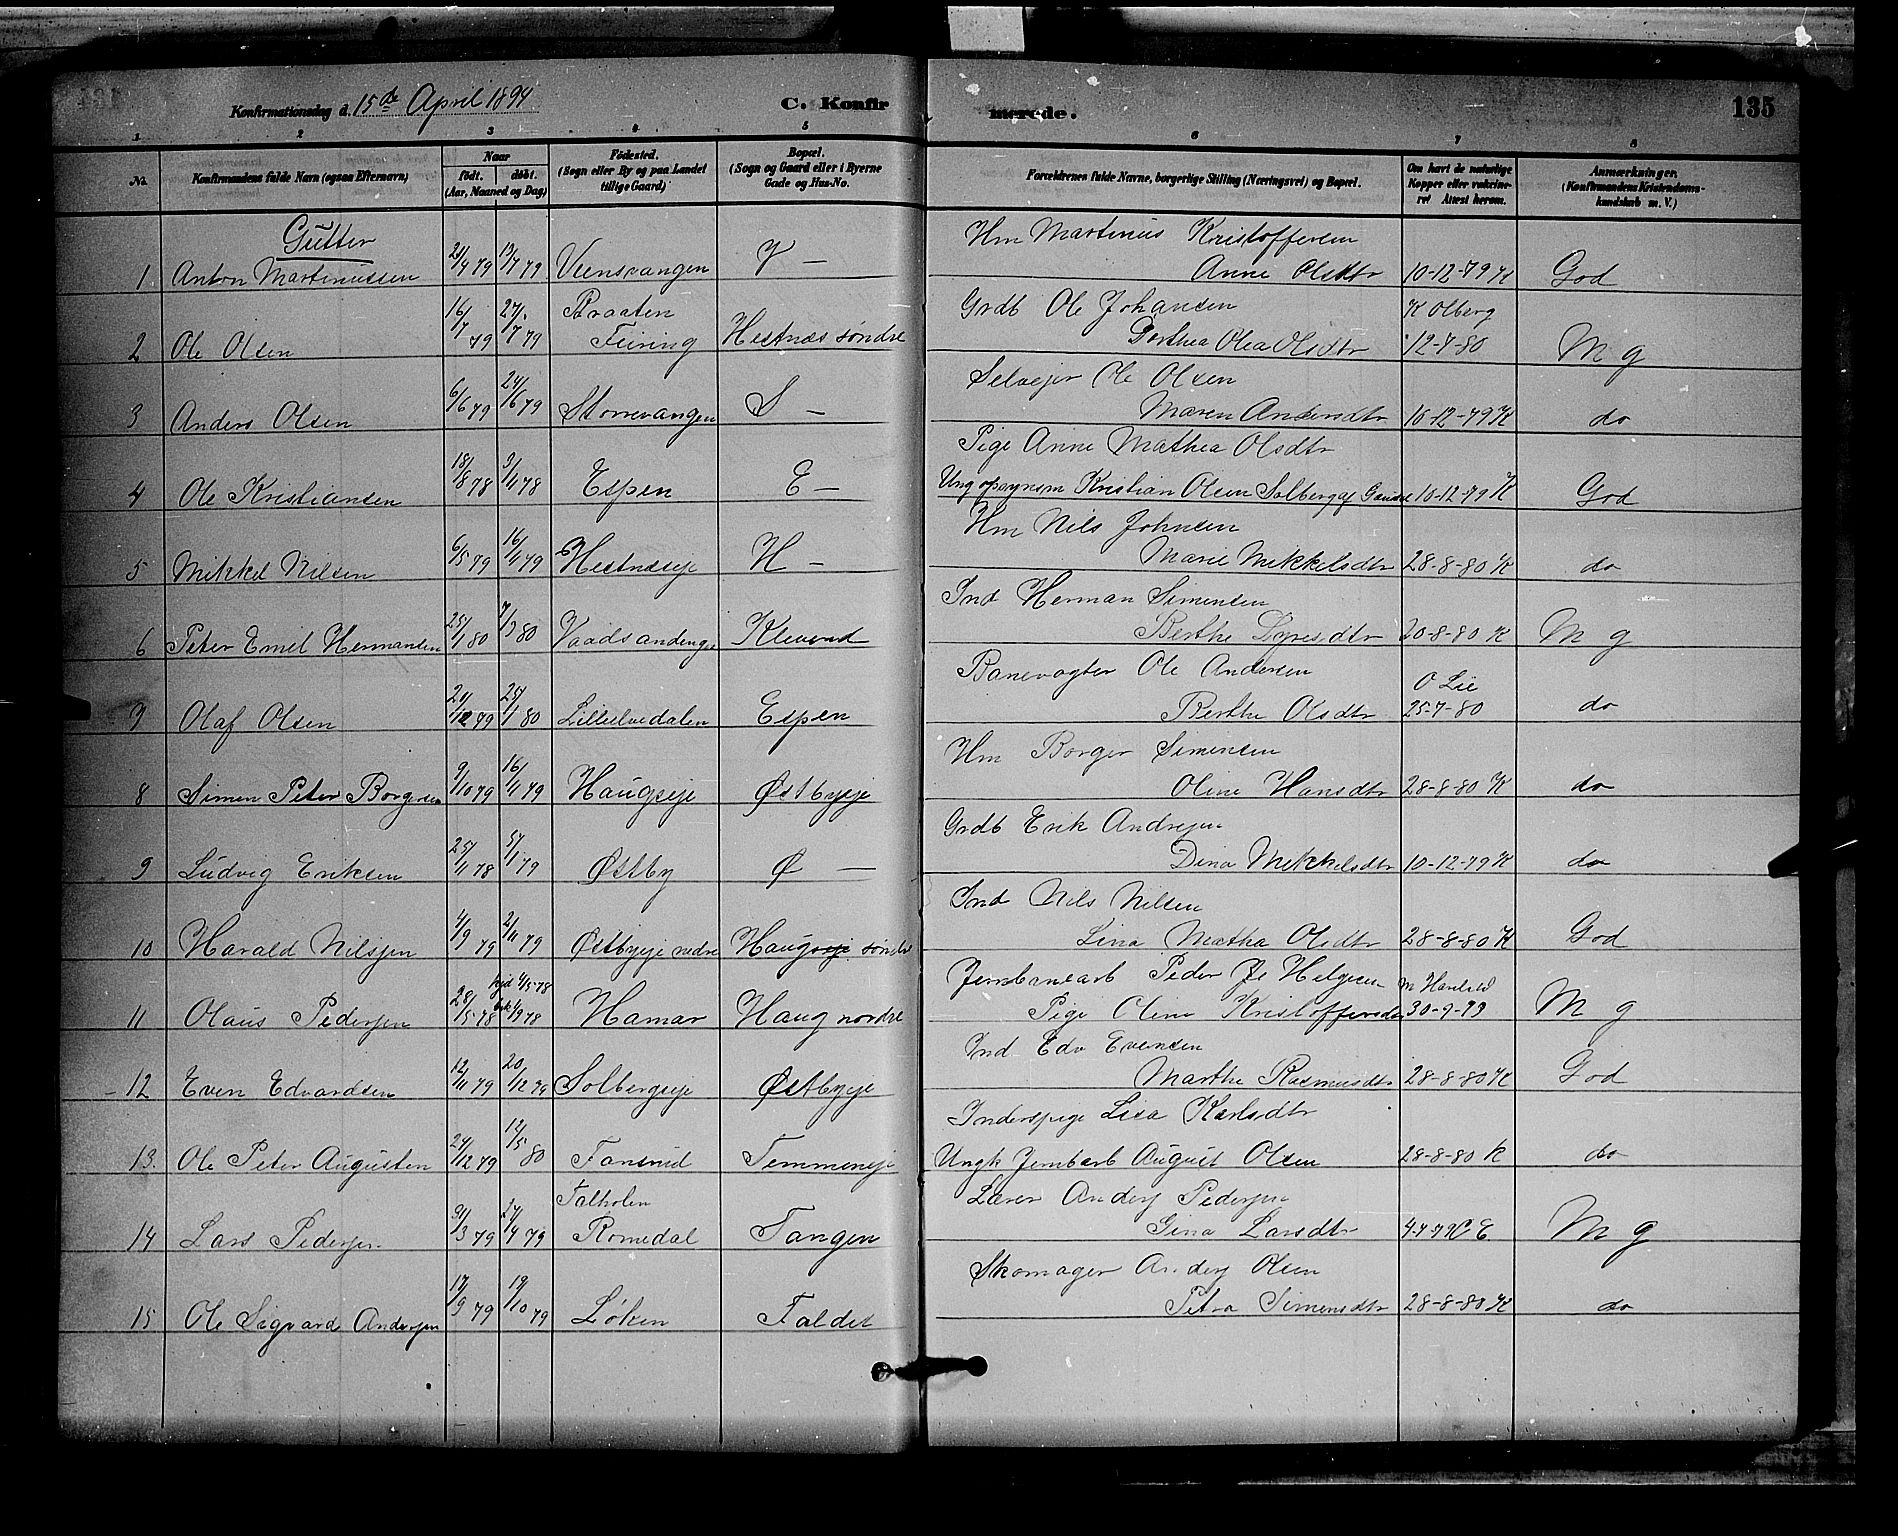 Konfirmationsdag d. 15de April 1894 C. Konfirmerede. 135
1 2 3 4 5 6 7 8
No. Konfirmandens fulde Navn (ogsaa Efternavn) Naar født. døbt. (Aar, Maaned og Dag) Fødested. (Sogn eller By og paa Landet tillige Gaard) Bopæl. (Sogn og Gaard eller i Byerne Gade og Hus-No. Forældrenes fulde Navne, borgerlige Stilling (Næringsvei) og Bopæl. Om havt de naturlige Kopper eller vakcineret Attest herom. Anmærkninger. (Konfirmandens Kristendomskundskab m. V.)
Gutter
Hm Martinus Kristoffersen
1 Anton Martinussen 13/7 79 V — Anne Olsdtr 10-12-79 K God
Braaten Grdb Ole Johansen K Olberg
2 Ole Olsen 16/7 79 27/7 79 Feiring Hestnæs søndre Dorthea Olea Olsdtr 12-7-80 M g
Selvejer Ole Olsen
3 Anders Olsen 6/6 79 24/6 79 Storrvangen S — Maren Andersdtr 10-12-79 K do
Pige Anne Mathea Olsdtr
4 Ole Kristiansen 18/8 78 3/11 78 Espen E — Kristian Olsen Solberg af 10-12-79 K God
Hm Nils Johnsen
5 Mikkel Nilsen 6/5 79 16/11 79 Hestnæseje H — Marie Mikkelsdtr 28-8-80 K do
Ind Herman Simensen
6 Peter Emil Hermansen 25/1 80 7/3 80 Berthe 20-8-80 K M g
Banevogter Ole Andersen O Lie
7 Olaf Olsen 21/12 79 25/1 80 Lilleelvedalen Espen Berthe Olsdtr 25-7-80 do
Hm Borger Simensen
8 Simen Peter Borgersen 9/10 79 16/11 79 Haugseje Østbyeje Oline Hansdtr 28-8-80 K do
Grdb Erik Andersen
9 Ludvig Eriksen 25/11 78 5/1 79 Østby Ø — Dina Mikkelsdtr 10-12-79 K do
Ind Nils Nilsen
10 Harald Nilssen 4/9 79 2/11 79 Østbyeje nedre Haug søndre Lina Mathea Olsdtr 28-8-80 K God
hjd 4/5 78 Jernbanearb Peder Helgesen
11 Olaus Pedersen 28/5 78 1/9 78 Hamar Haug nordre Pige Oline Kristoffersdtr 30-9-93 M g
Ind Edv Evensen
12 Even Edvardsen 12/11 79 20/12 79 Solbergseje Østbyeje Marthe Rasmusdtr 28-8-80 K God
Inderspige Lisa Karlsdtr
13. Ole Peter Augusten 24/12 79 12/5 80 Fonsrud Temmeneje Ungk Jernbarb August Olsen 28-8-80 K do
Talholen Lærer Anders Pedersen
14 Lars Pedersen 31/3 79 27/4 79 Romedal Tangen Gina Larsdtr M g
Skomager Anders Olsen
15 Ole Sigvard Andersen 17/9 79 19/10 79 Løken Faldet Petra Simensdtr 28-8-80 K do